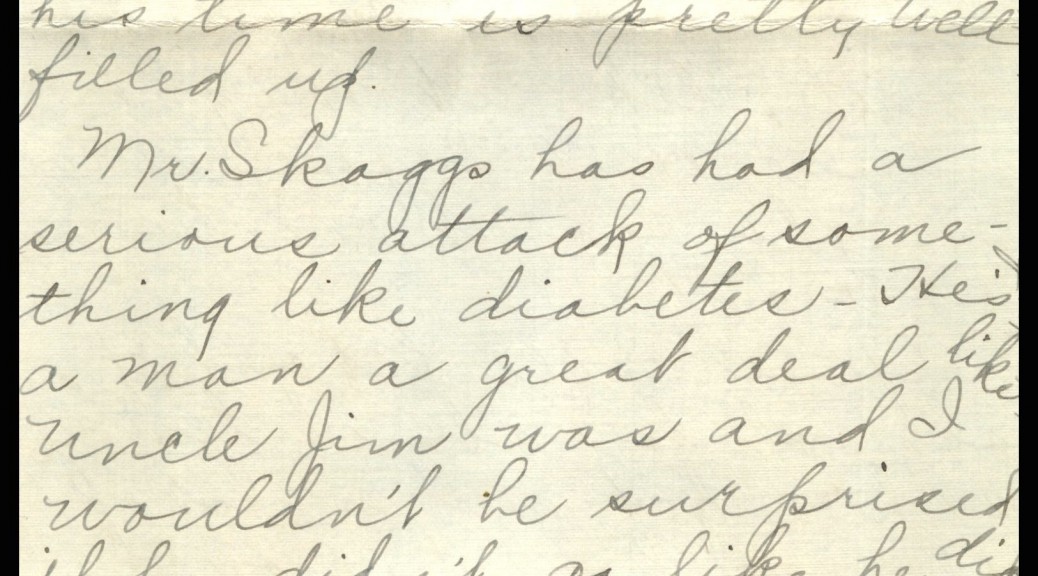 his time is pretty well
filled up.
Mr. Skaggs has had a
serious attack of some-
thing like diabetes - He's
a man a great deal like
Uncle Jim was and I
wouldn't be surprised
like he did